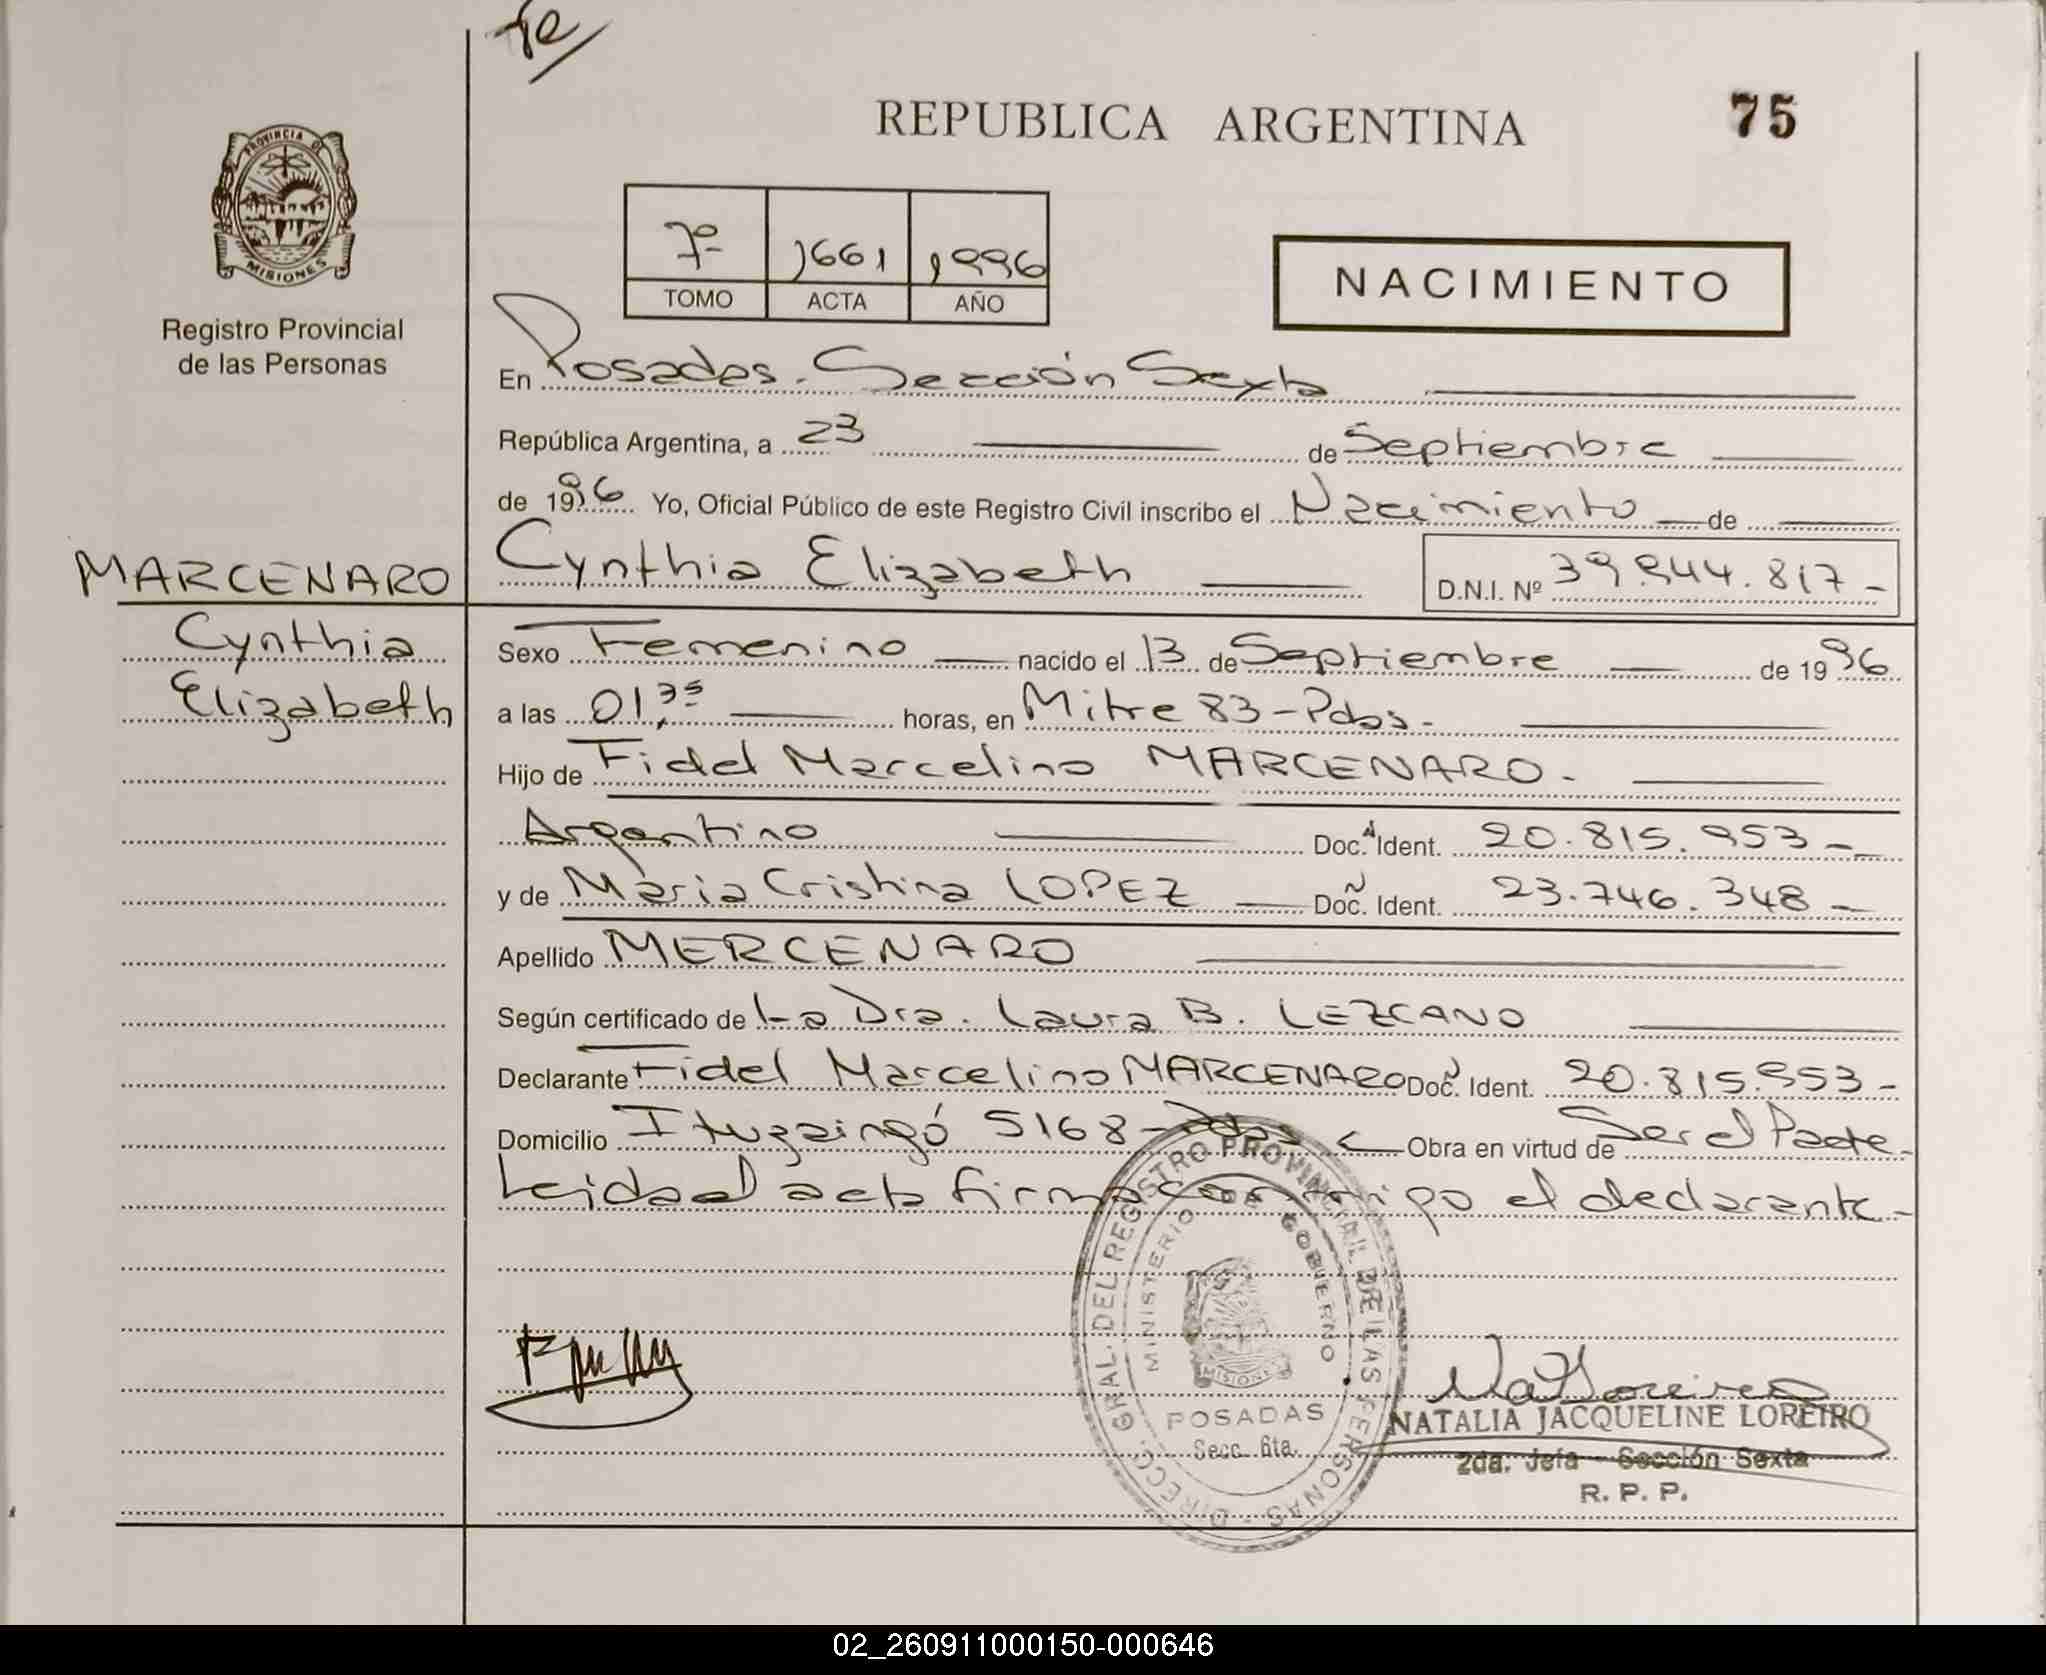 fe
REPUBLICA ARGENTINA
75
PROVINCIA DE
MISIONES
Registro Provincial
de las Personas
7º 1661 1996
TOMO ACTA AÑO
NACIMIENTO
En Posadas. Sección Sexta
República Argentina, a 23 de Septiembre
de 1996 Yo, Oficial Público de este Registro Civil inscribo el Nacimiento de
MARCENARO Cynthia Elizabeth D.N.I. Nº 39.944.817-
Cynthia Sexo Femenino nacido el 13 de Septiembre de 1996
Elizabeth a las 01,35 horas, en Mitre 83-Pdas.
Hijo de Fidel Marcelino MARCENARO.
Argentino Doc. Ident. 20.815.953-
y de Maria Cristina LOPEZ Doc. Ident. 23.746.348-
Apellido MERCENARO
Según certificado de La Dra. Laura B. LEZCANO
Declarante Fidel Marcelino MARCENARO Doc. Ident. 20.815.953-
Domicilio Ituzaingó 5168-Pdas Obra en virtud de Ser el Padre-
Leida el acta firma conmigo el declarante-
DIRECC. GRAL. DEL REGISTRO PROVINCIAL DE LAS PERSONAS -
MINISTERIO DE GOBIERNO
MISIONES
POSADAS
Secc. 6ta.
NATALIA JACQUELINE LOREIRO
2da. Jefa - Sección Sexta
R. P. P.
02_260911000150-000646